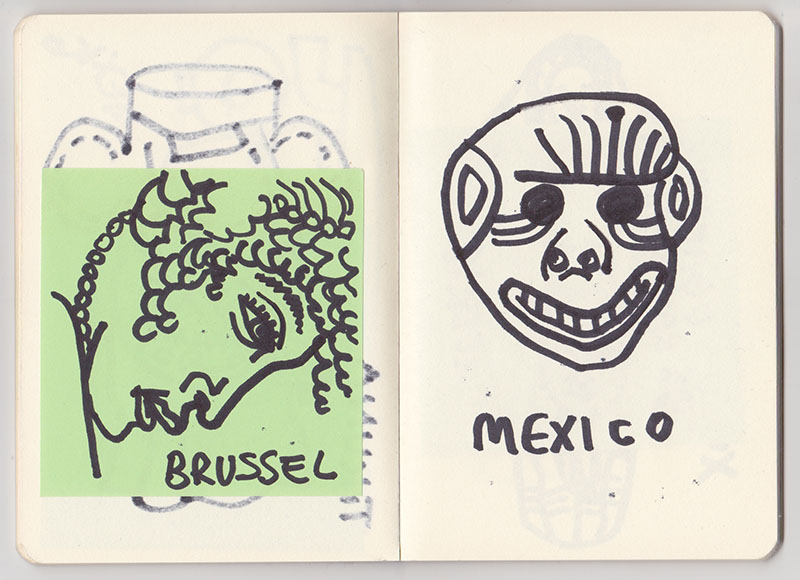 BRUSSEL
MEXICO